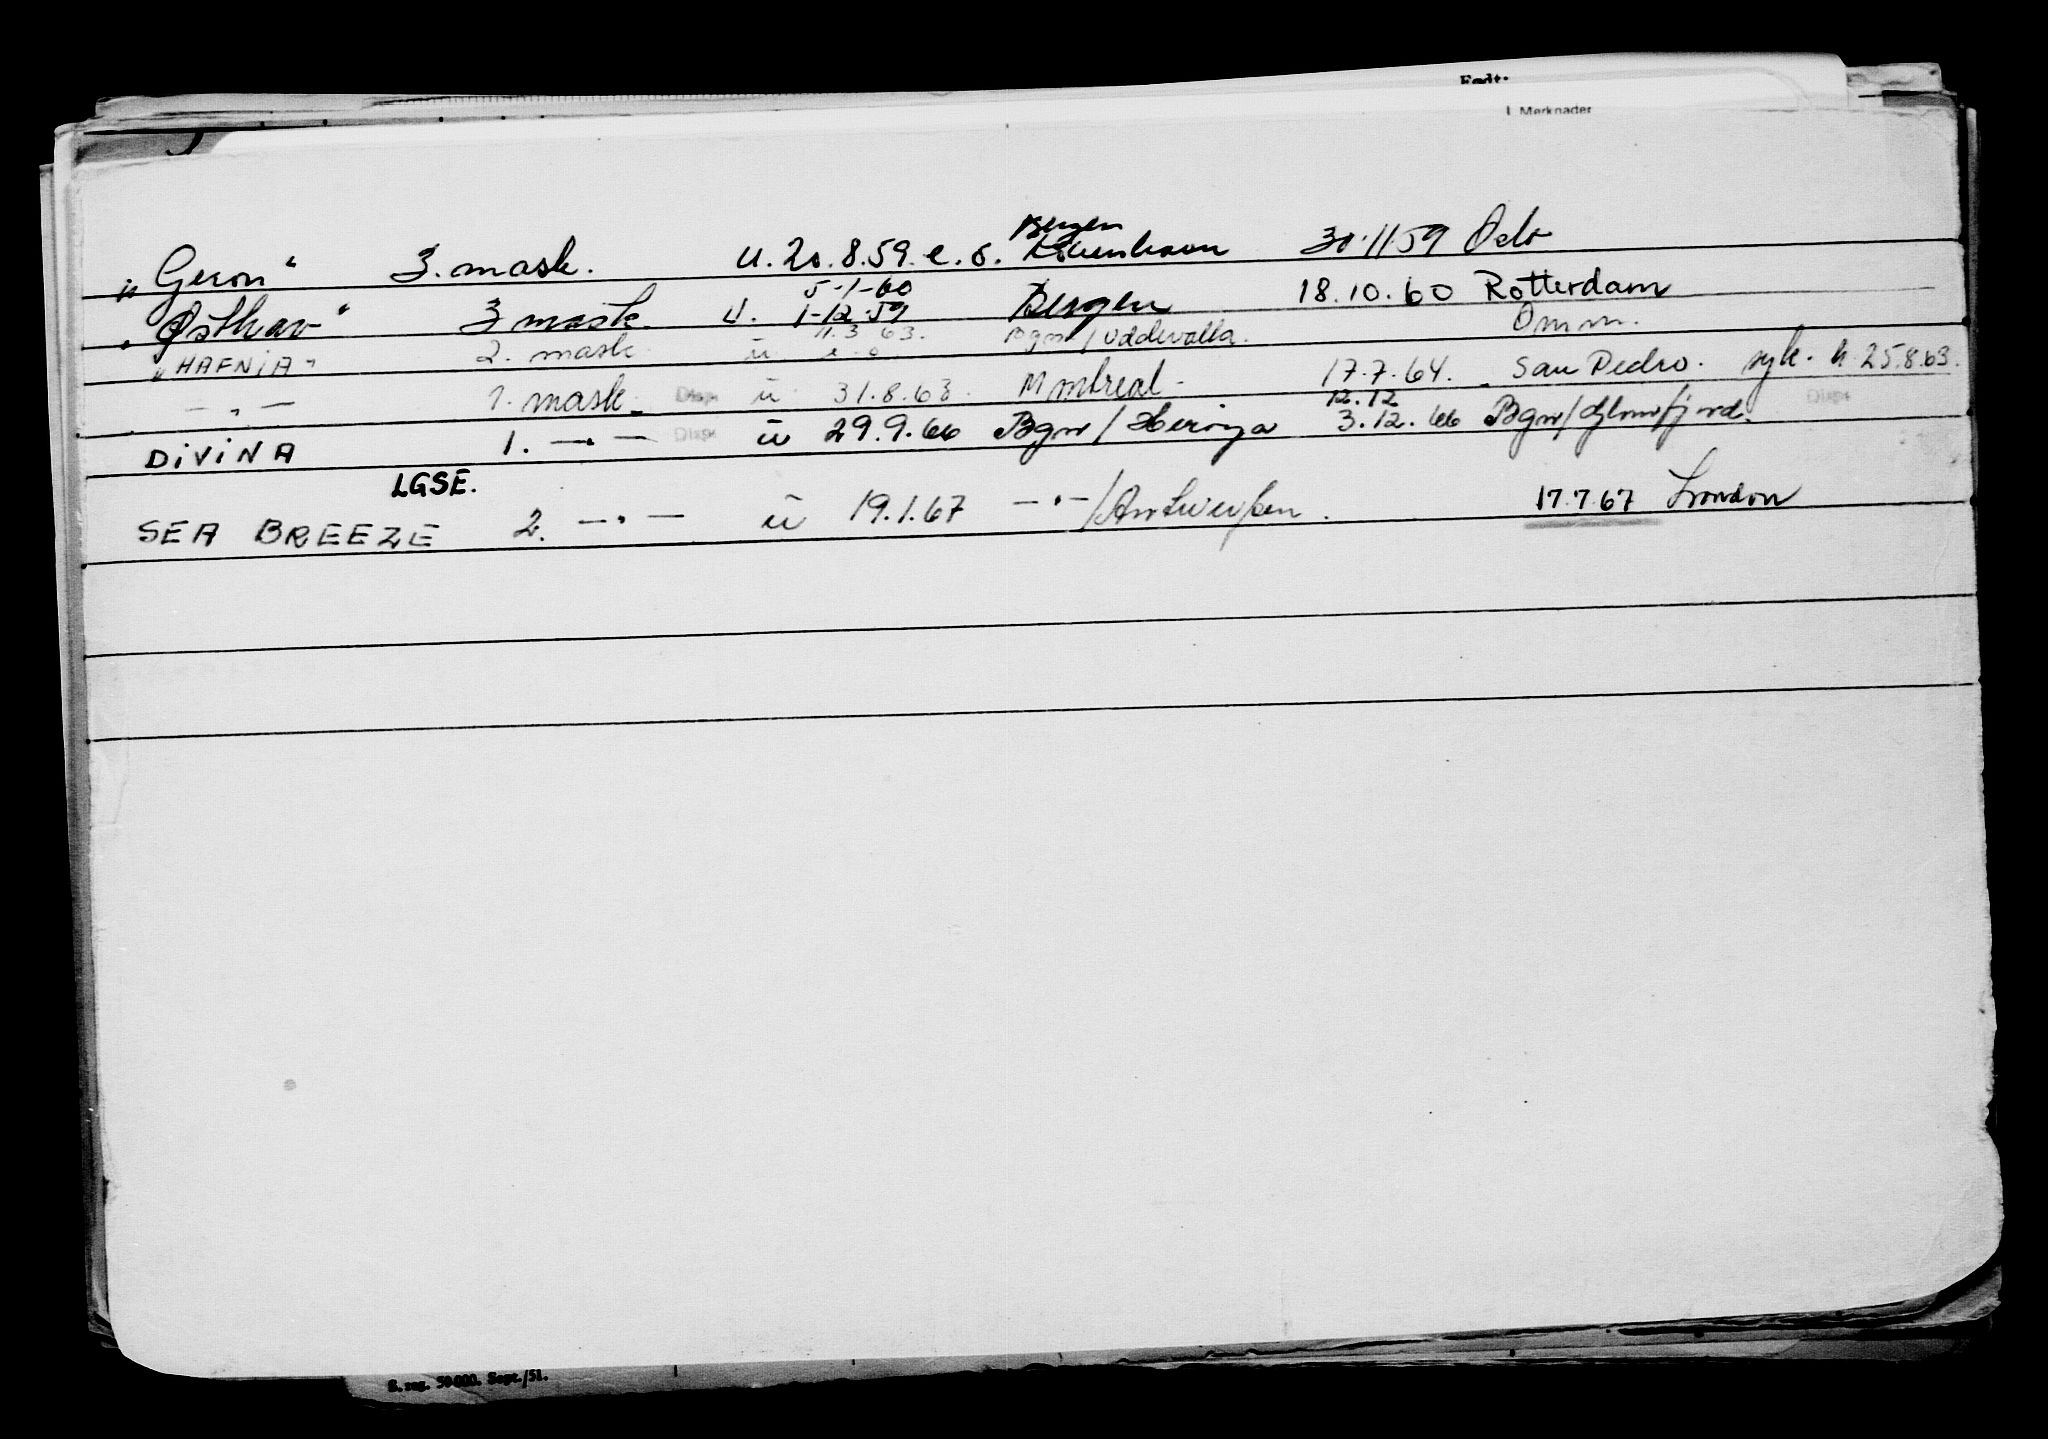 Født:
Merknader
"Geron" 3. mask. u. 20.8.59. e.o. Bergen København 30.11.59 Oslo
"Østhav" 3 mask. u. 5-1-60 1-12-59 Bergen 18.10.60 Rotterdam
"HAFNIA" 2. mask u 11.3 63. e.o. Bgn/Uddevalla. Omm.
— " — 1. mask. Disp u 31.8.63 Montreal - 17.7.64. San Pedro. syk. h 25.8.63.
DIVINA 1. — " — Disp u 29.9.66 Bgn/Herøya 12.12 3.12.66 Bgn/Glomfjord. Disp
LGSE.
SEA BREEZE 2. — " — u 19.1.67 — " —/Antwerpen. 17.7.67 London
S. reg. 50 000. Sept./51.